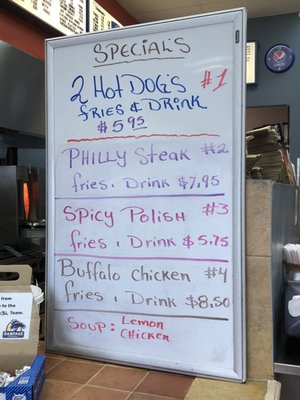 SPECIAL'S
2 HOT DOG'S #1
FRIES & DRINK
$5.95
PHILLY STEAK #2
fries. Drink $7.95
SPICY POLISH #3
fries, Drink $5.75
Buffalo Chicken #4
fries, Drink $8.50
Soup: Lemon
Chicken
from
the Team.
RAMPAGE